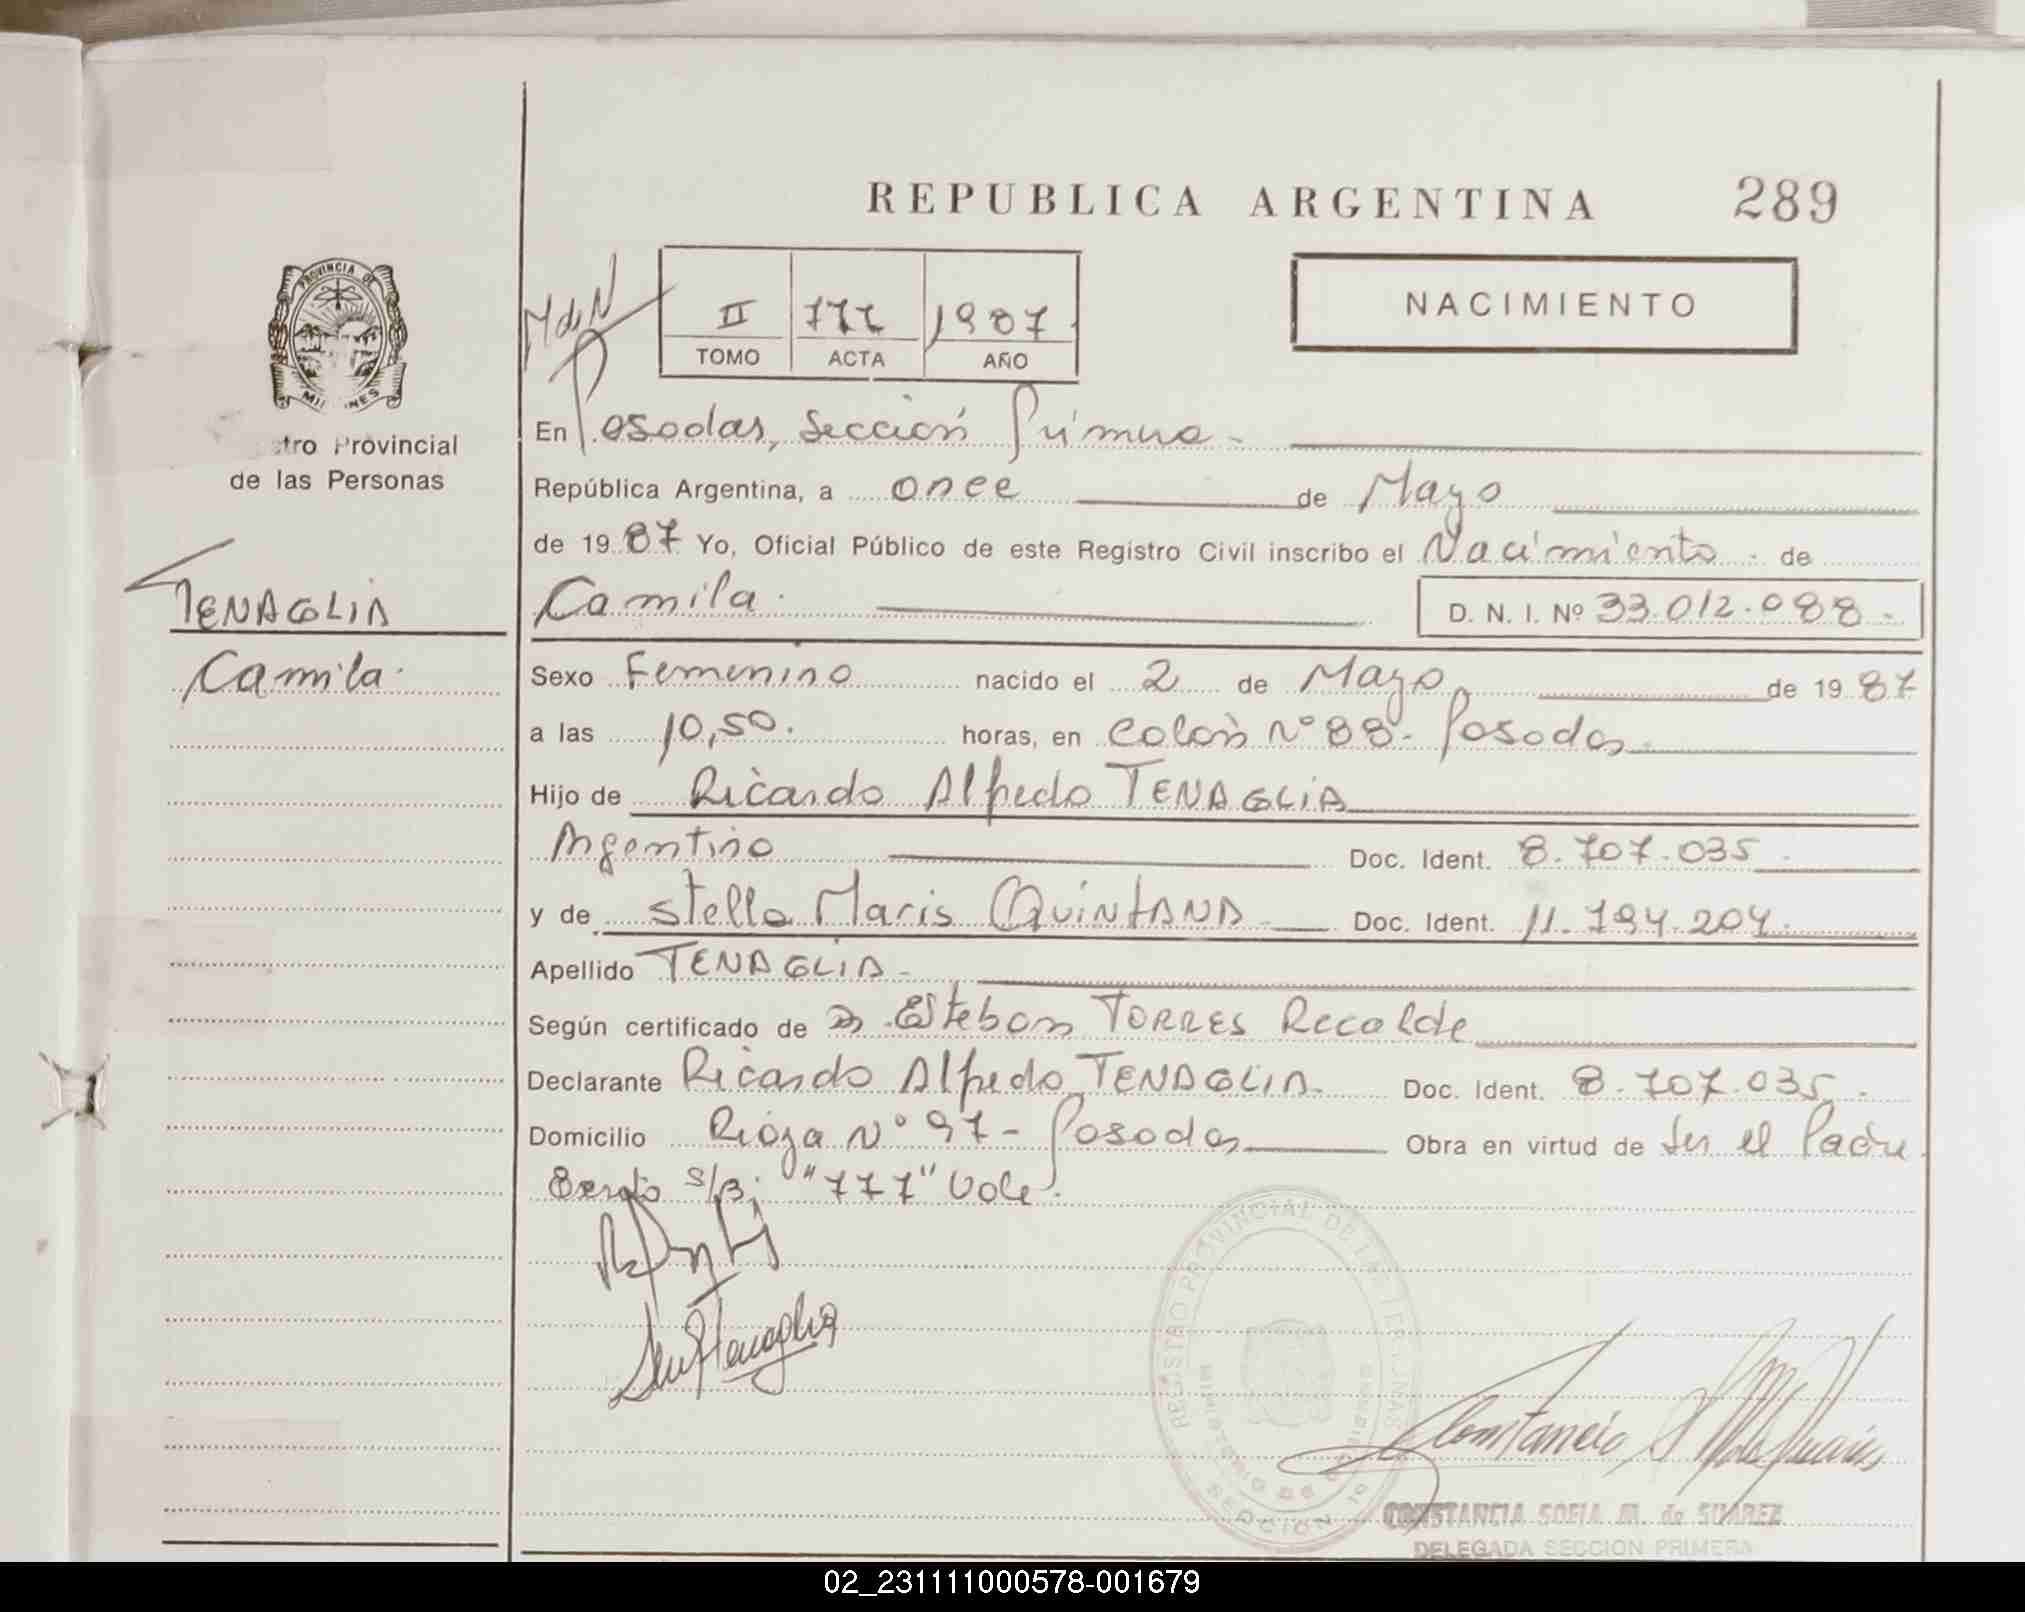 REPUBLICA ARGENTINA 289
PROVINCIA DE MISIONES
tro Provincial
de las Personas
MdeN
II 777 1987
TOMO ACTA AÑO
NACIMIENTO
En Posadas, Sección Primera -
República Argentina, a once de Mayo
de 1987 Yo, Oficial Público de este Registro Civil inscribo el Nacimiento - de
TENAGLIA
Camila. D. N. I. Nº 33.012.088 -
Camila.
Sexo Femenino nacido el 2 de Mayo de 1987
a las 10,50. horas, en Colón Nº 88 - Posadas
Hijo de Ricardo Alfredo TENAGLIA
Argentino Doc. Ident. 8.707.035
y de Stella Maris QUINTANA Doc. Ident. 11.794.204.
Apellido TENAGLIA -
Según certificado de Esteban TORRES Recalde
Declarante Ricardo Alfredo TENAGLIA. Doc. Ident. 8.707.035.
Domicilio Rioja Nº 97 - Posadas Obra en virtud de ser el Padre.
s/B: "777" Vale.
REGISTRO PROVINCIAL DE LAS PERSONAS
MINISTERIO DE GOBIERNO
SECCION 1º
CONSTANCIA SOFIA M. de SUAREZ
DELEGADA SECCION PRIMERA
02_231111000578-001679